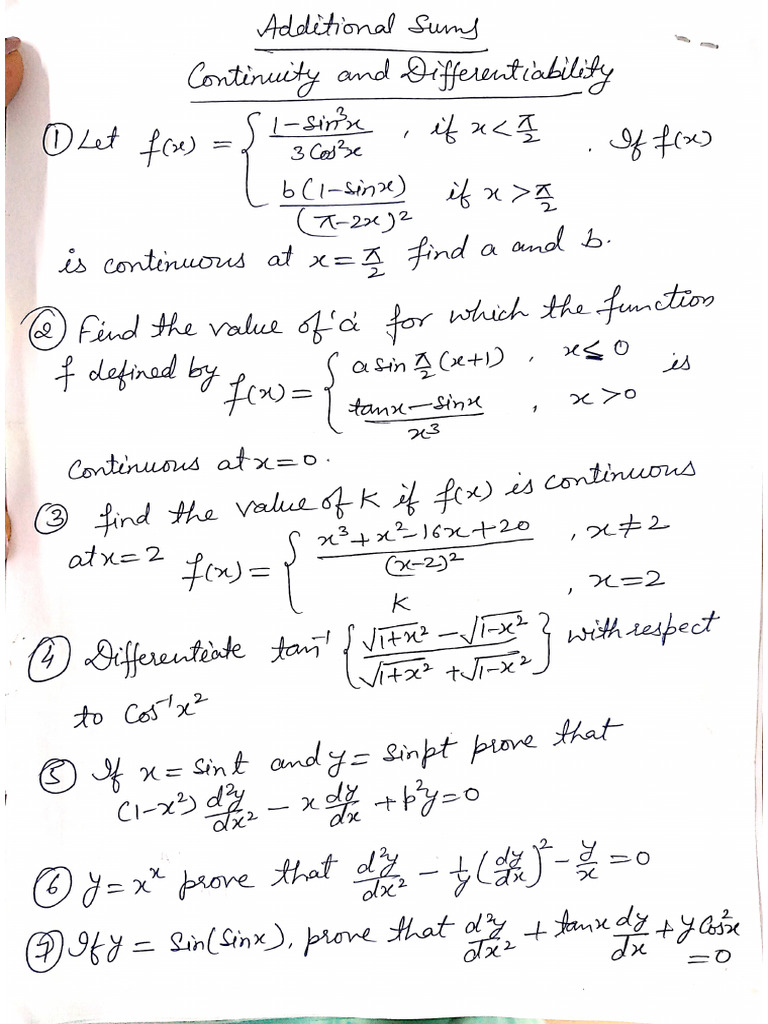 Additional Sums
Continuity and Differentiability
① Let f(x) = { (1-Sin³x)/(3Cos²x) , if x<π/2 . If f(x)
b(1-Sinx)/(π-2x)² if x>π/2
is continuous at x=π/2 find a and b.
② Find the value of 'a' for which the function
f defined by f(x) = { a sin π/2 (x+1) , x≤0 is
(tanx-Sinx)/x³ , x>0
Continuous at x=0.
③ find the value of K if f(x) is continuous
at x=2 f(x) = { (x³+x²-16x+20)/(x-2)² , x≠2
K , x=2
④ Differenteate tan⁻¹ { (√1+x² - √1-x²)/(√1+x² + √1-x²) } with respect
to Cos⁻¹x²
⑤ If x = Sint and y = Sinpt prove that
(1-x²) d²y/dx² - x dy/dx + p²y=0
⑥ y=xˣ prove that d²y/dx² - 1/y (dy/dx)² - y/x = 0
⑦ If y = Sin(Sinx), prove that d²y/dx² + tanx dy/dx + y Cos²x
=0